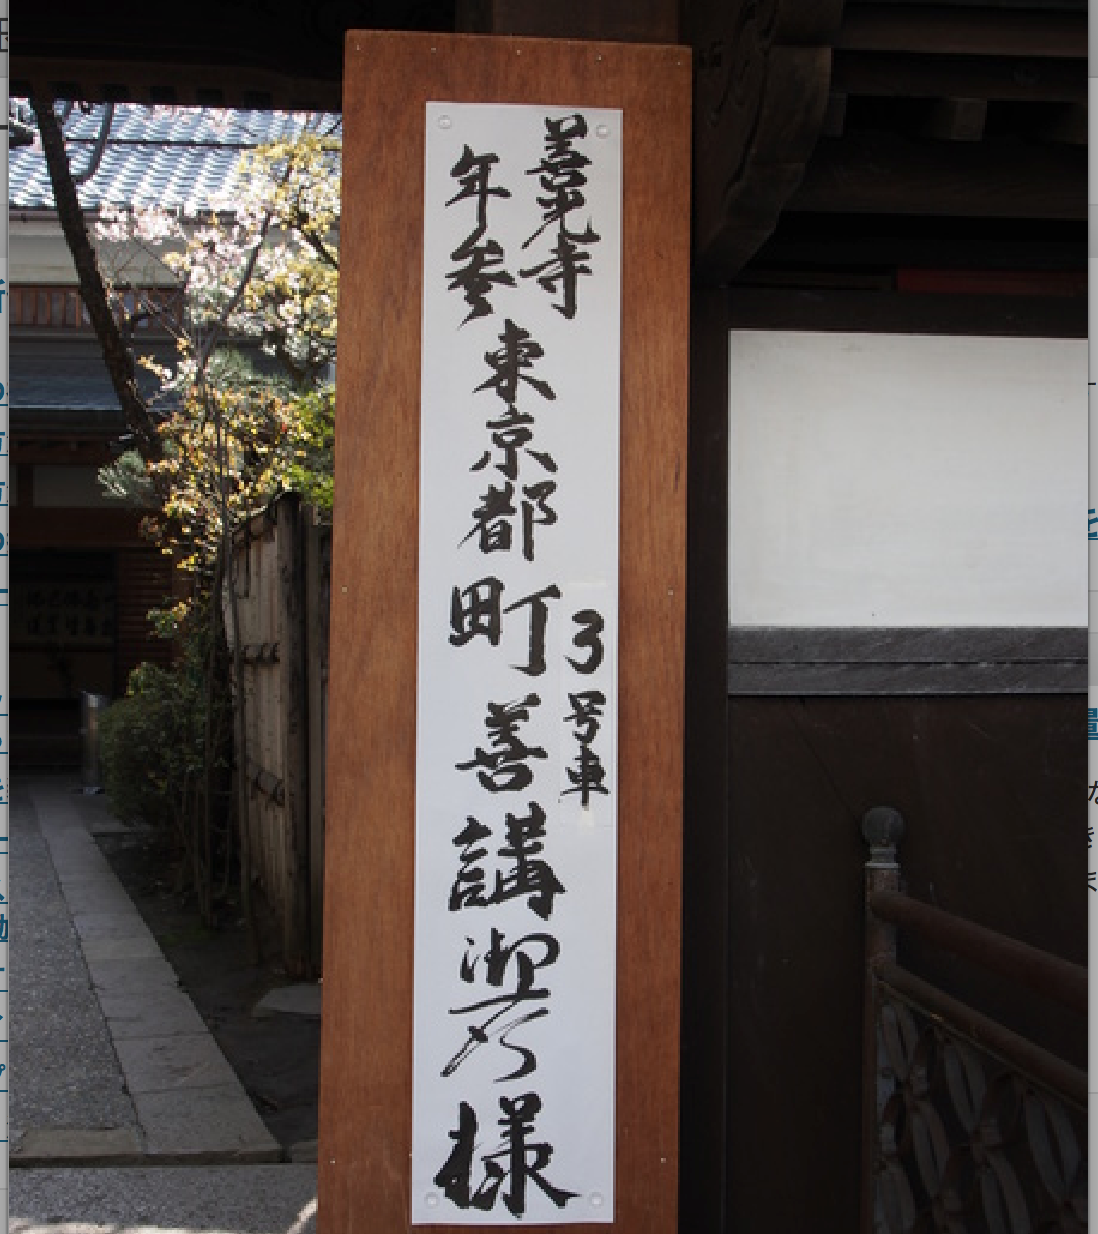 善光寺
年参
東京都町善講御一行様
3号車